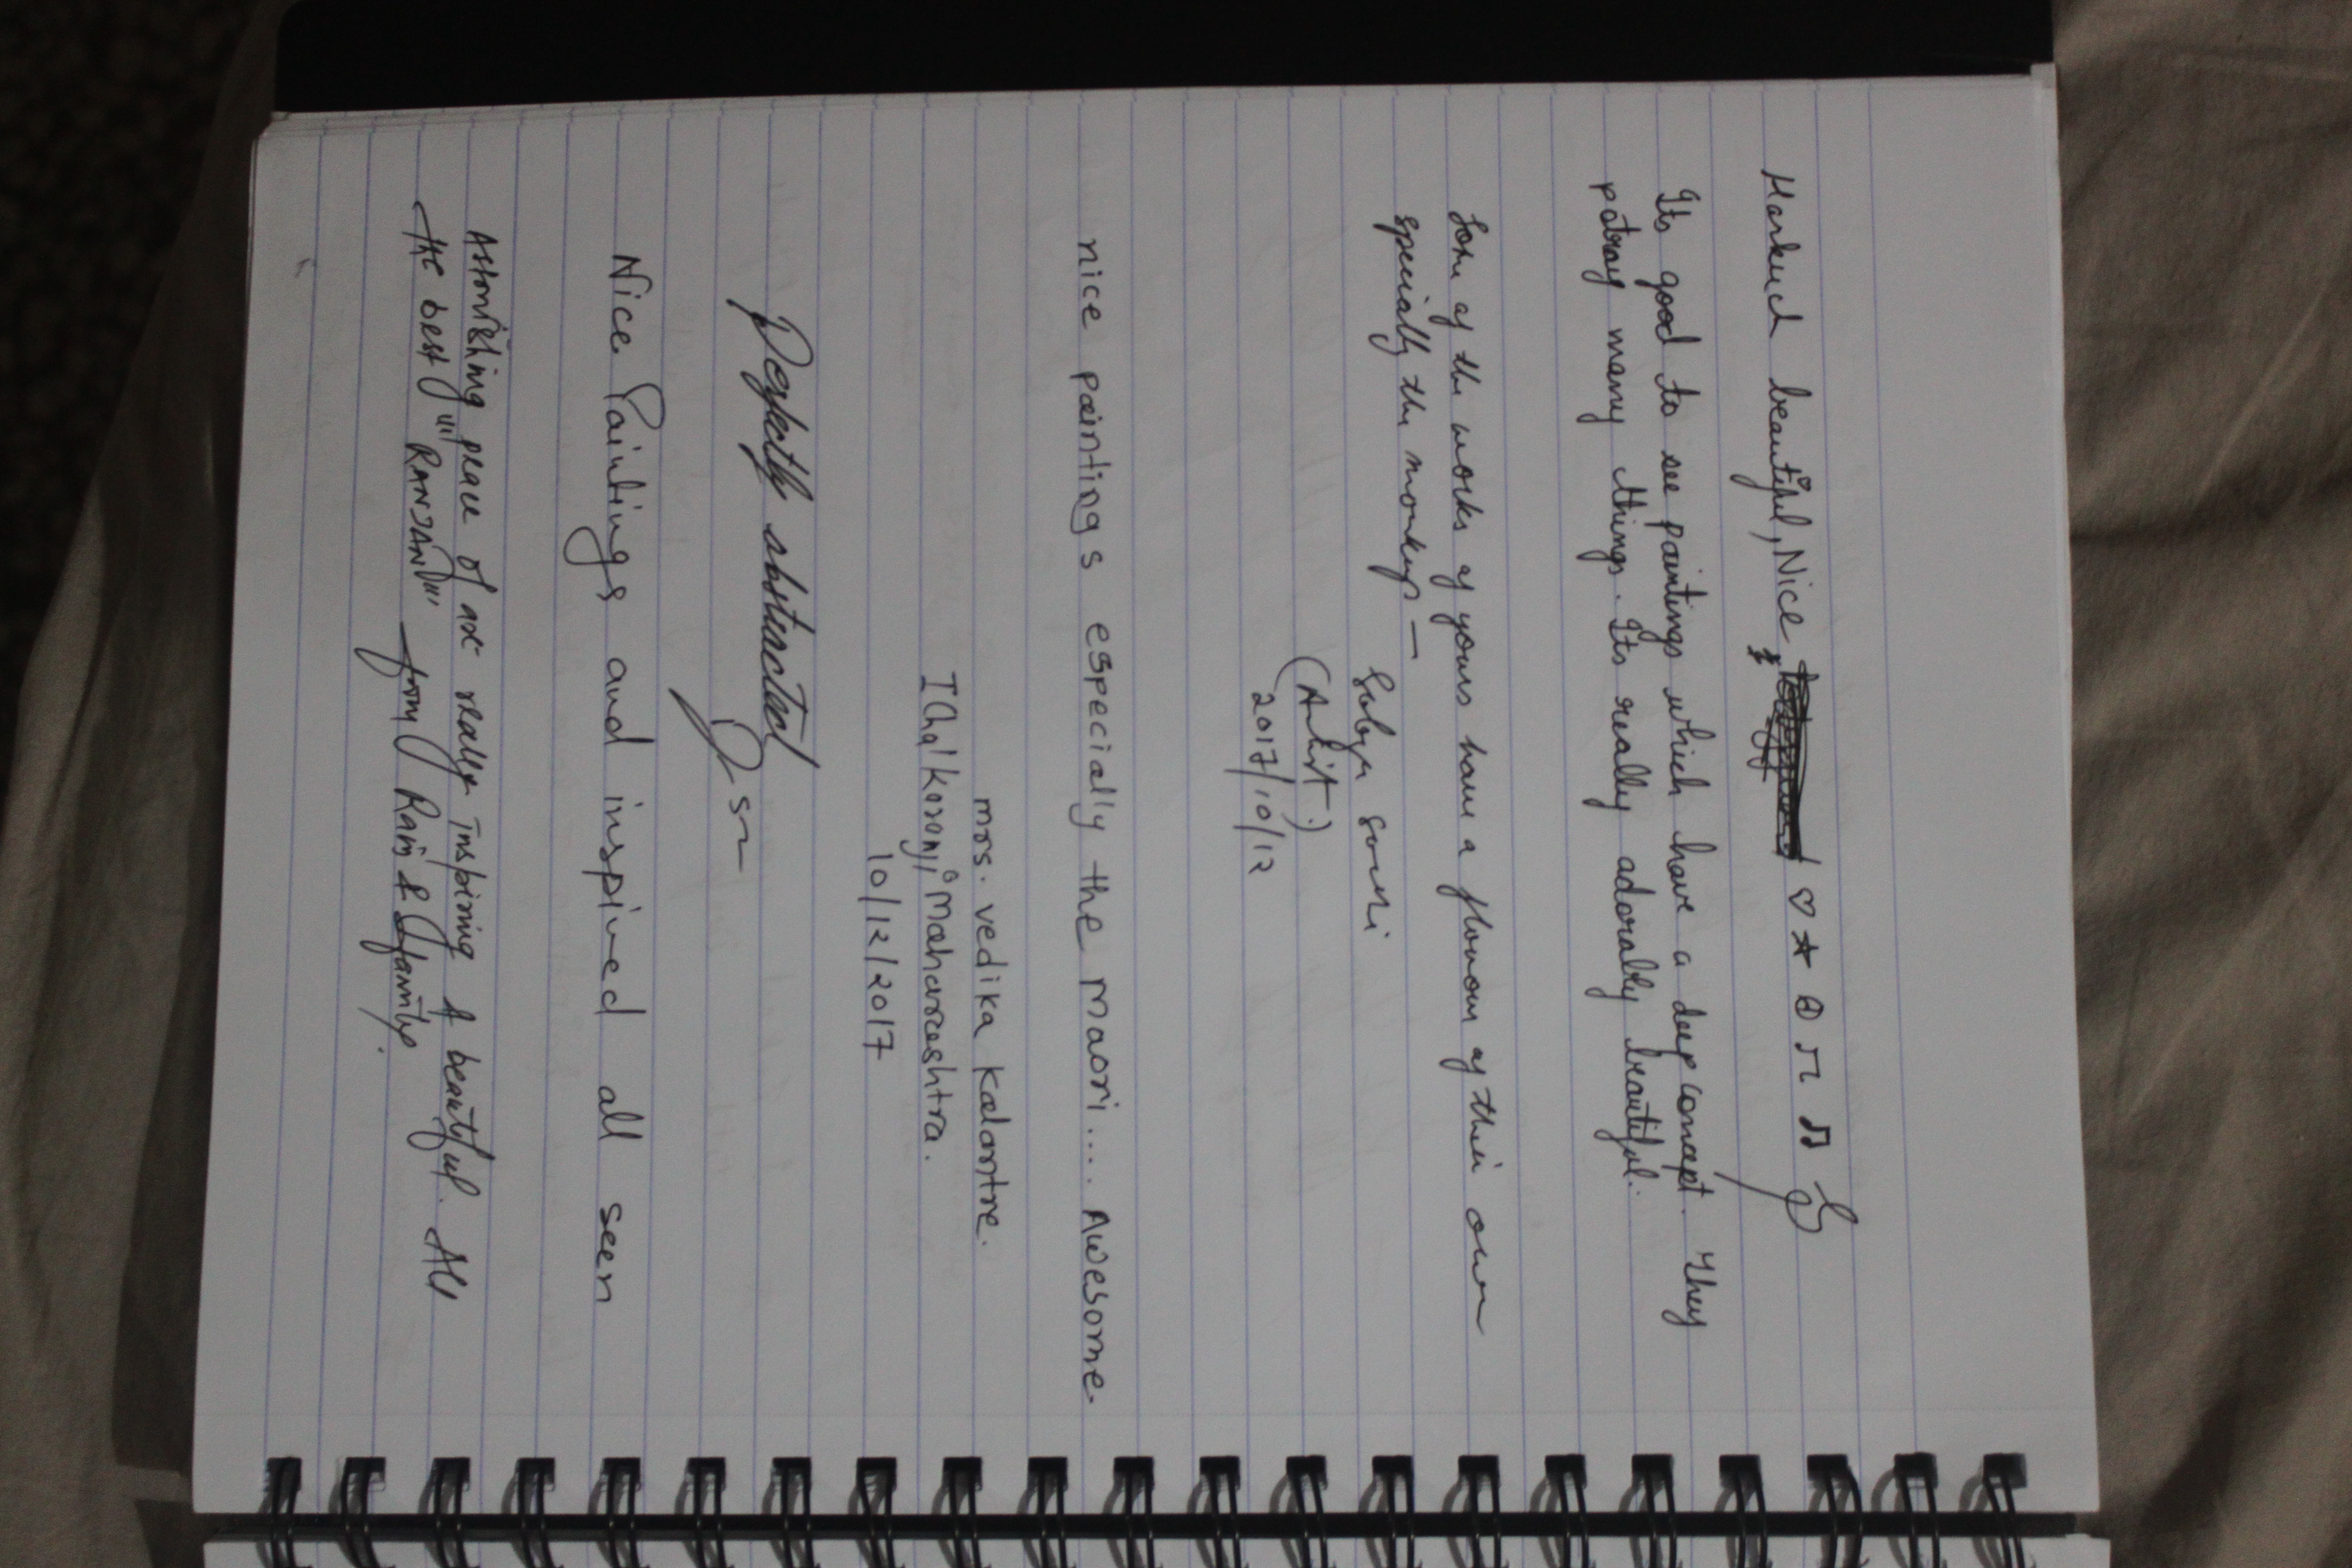 beautiful, Nice
Its good to see paintings which have a deep concept. They
potray many things. Its really adorably beautiful.
Some of the works of yours have a flavour of their own
specially the monkeys —
2017/10/12
nice paintings especially the maori... Awesome.
mrs. vedika kalantre.
Ichalkaranji, Maharashtra.
10/12/2017
Perfectly abstracted
Nice Paintings and inspired all seen
Astonishing peace of art really inspiring & beautiful. All
the best "" RANJAN "" from Ram & family.